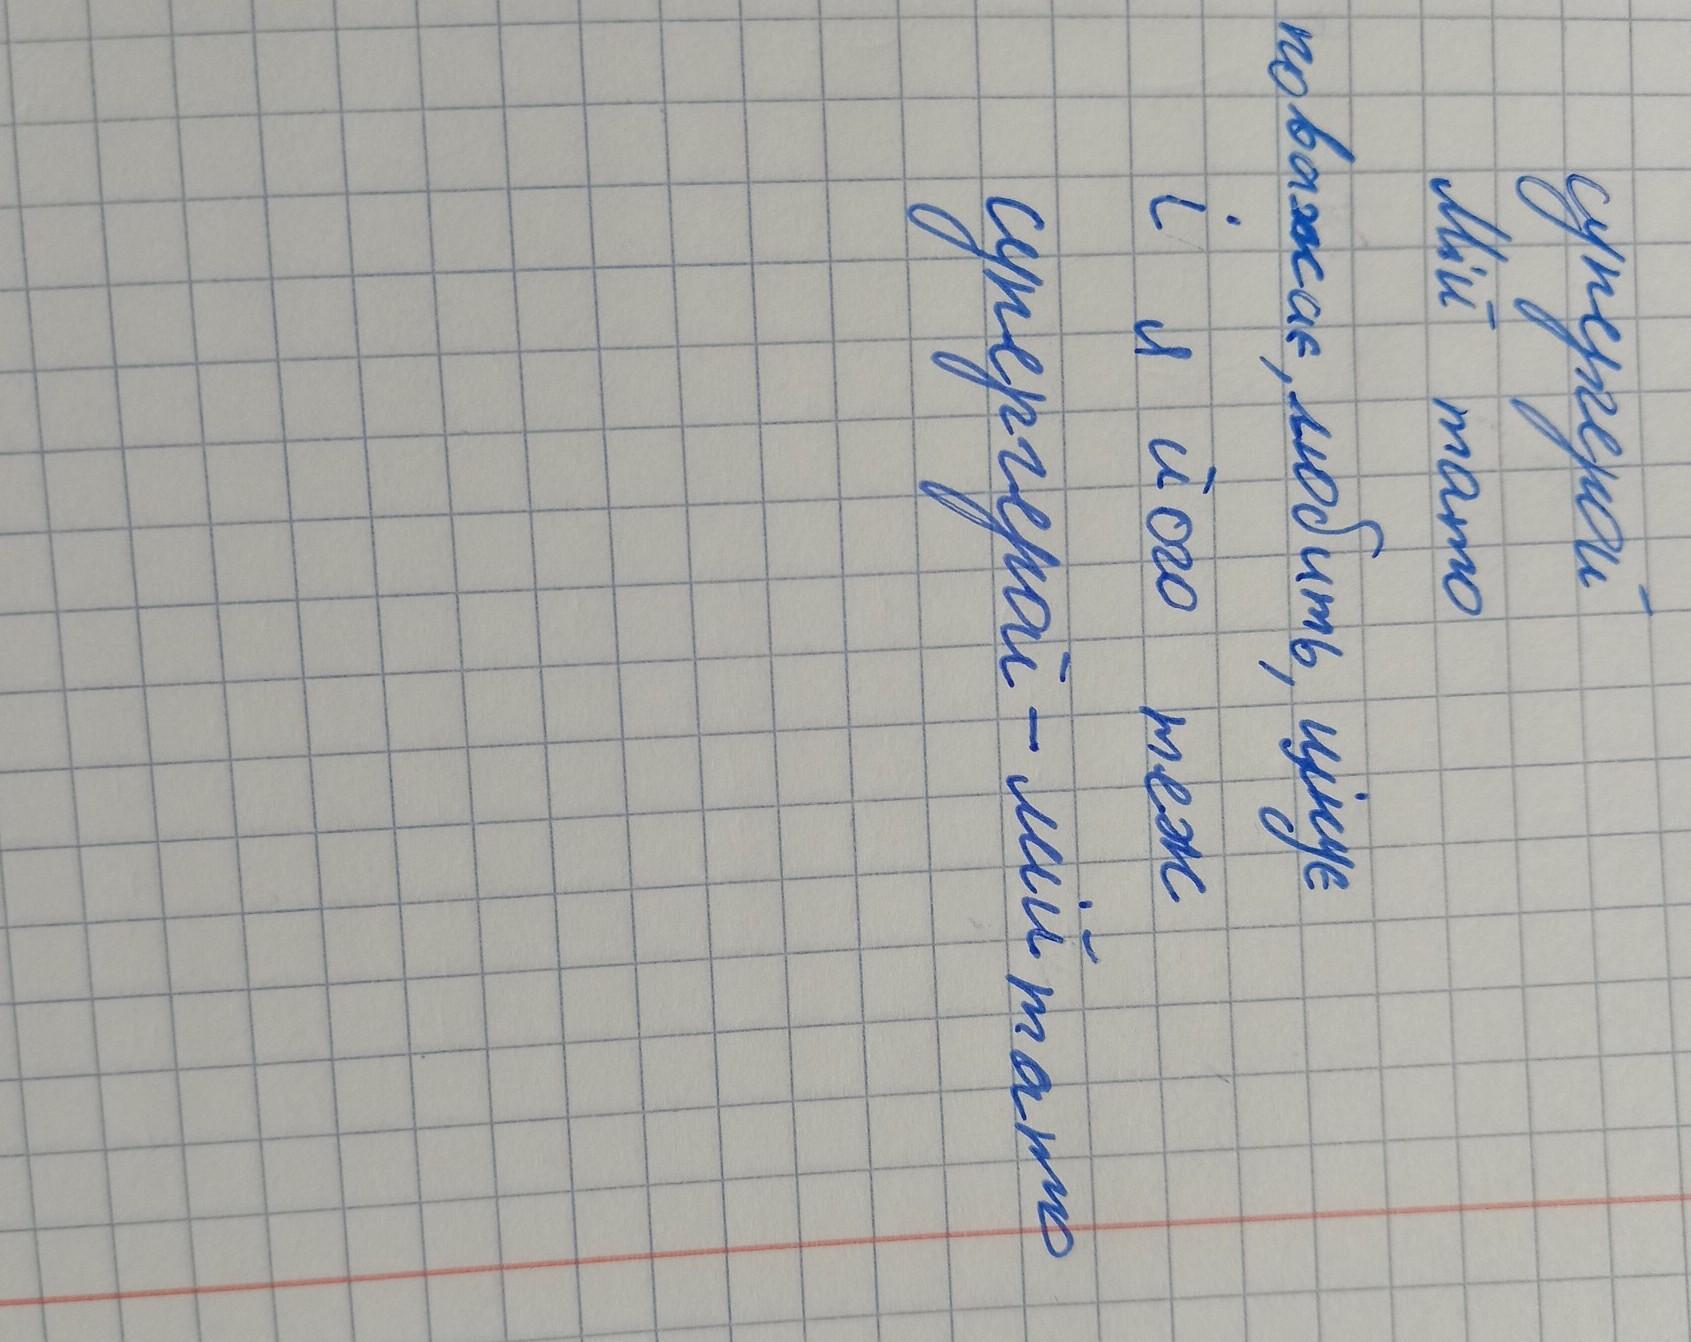 супергерой
Мій тато
поважає, любить, цінує
і я його теж
супергерой - мій тато